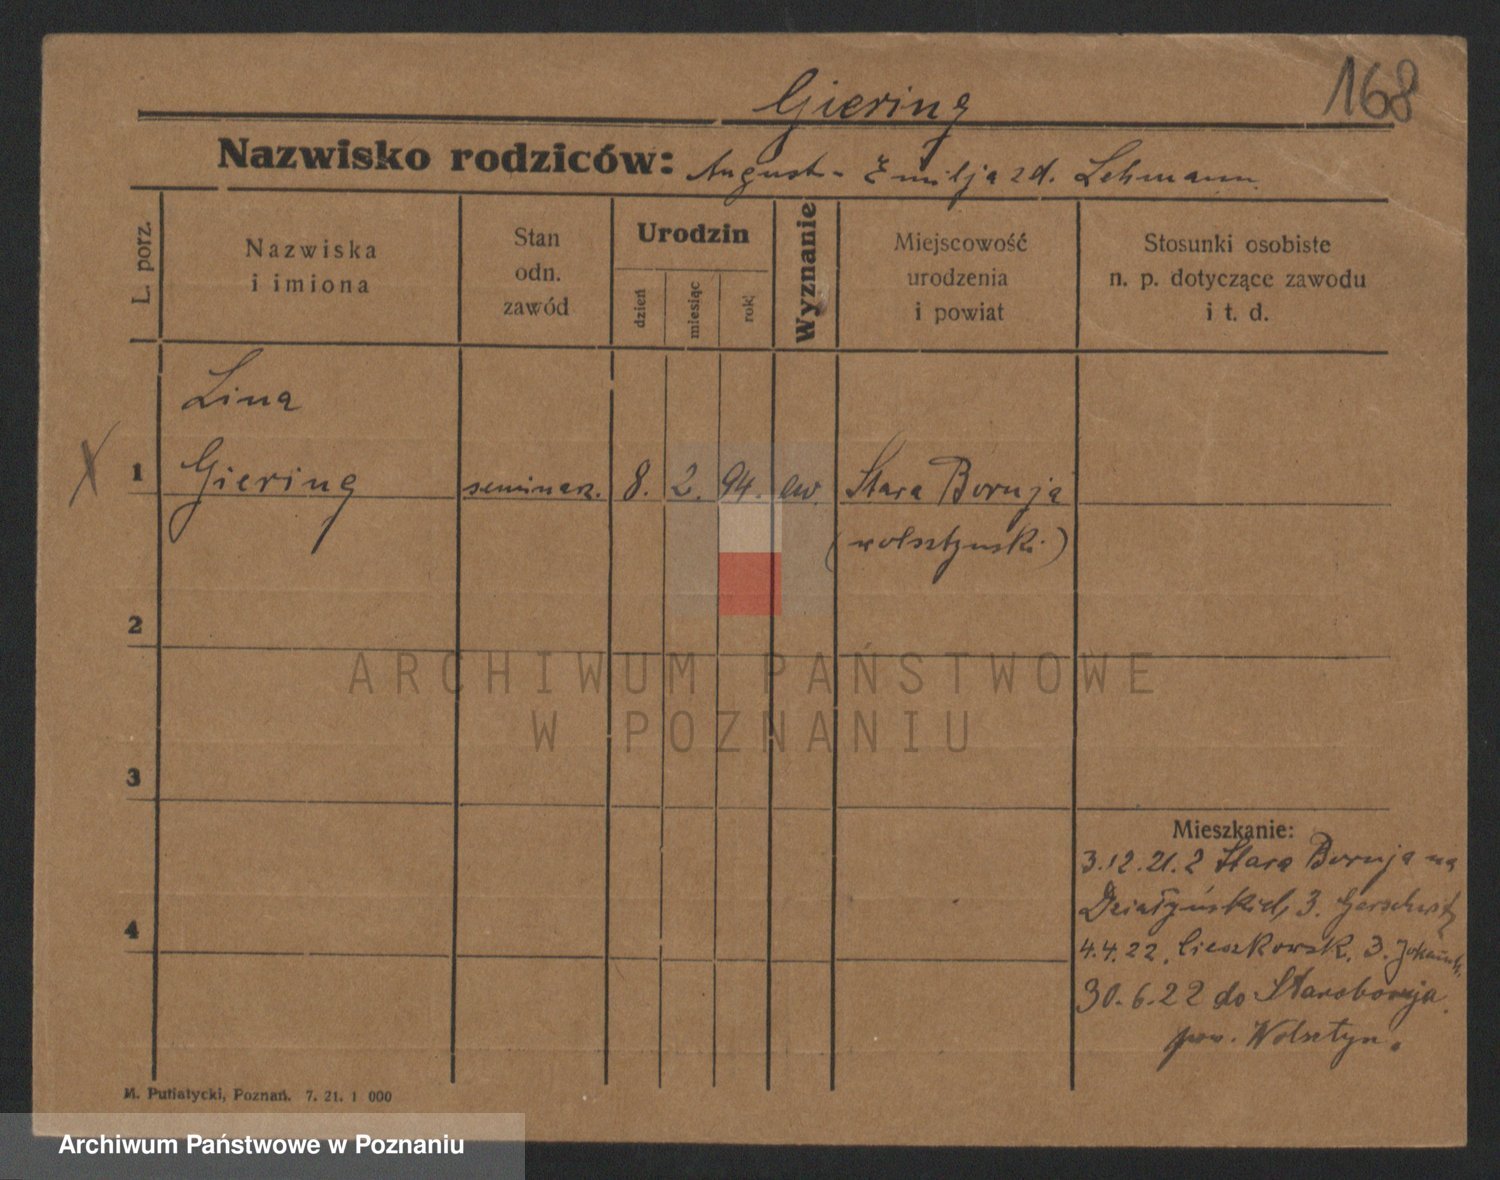 168
Giering
Nazwisko rodziców: August - Emilja zd. Lehmann
L. porz.
Nazwiska
i imiona
Stan
odn.
zawód
Urodzin
dzień
miesiąc
rok
Wyznanie
Miejscowość
urodzenia
i powiat
Stosunki osobiste
n. p. dotyczące zawodu
i t. d.
Lina
X 1 Giering seminarz. 8. 2. 94. ew. Stara Boruja
(wolsztyński)
2
3
4
Mieszkanie:
3.12.21. z Stara Boruja na
Działyńskich 3.
4.4.22. Cieszkowsk. 3.
30.6.22 do Staroboruja
pow. Wolsztyn.
M. Putiatycki, Poznań. 7. 21. 1 000
ARCHIWUM PAŃSTWOWE
W POZNANIU
Archiwum Państwowe w Poznaniu